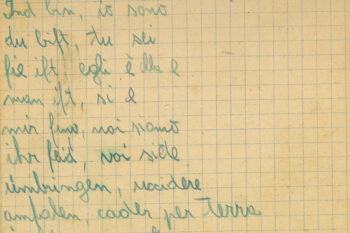 Ind bin, io sono
du bist, tu sei
sie ist egli è ella è
man ist, si è
mir sind, noi siamo
ihr seid, voi siete
umbringen, uccidere
amfalen, cader per terra